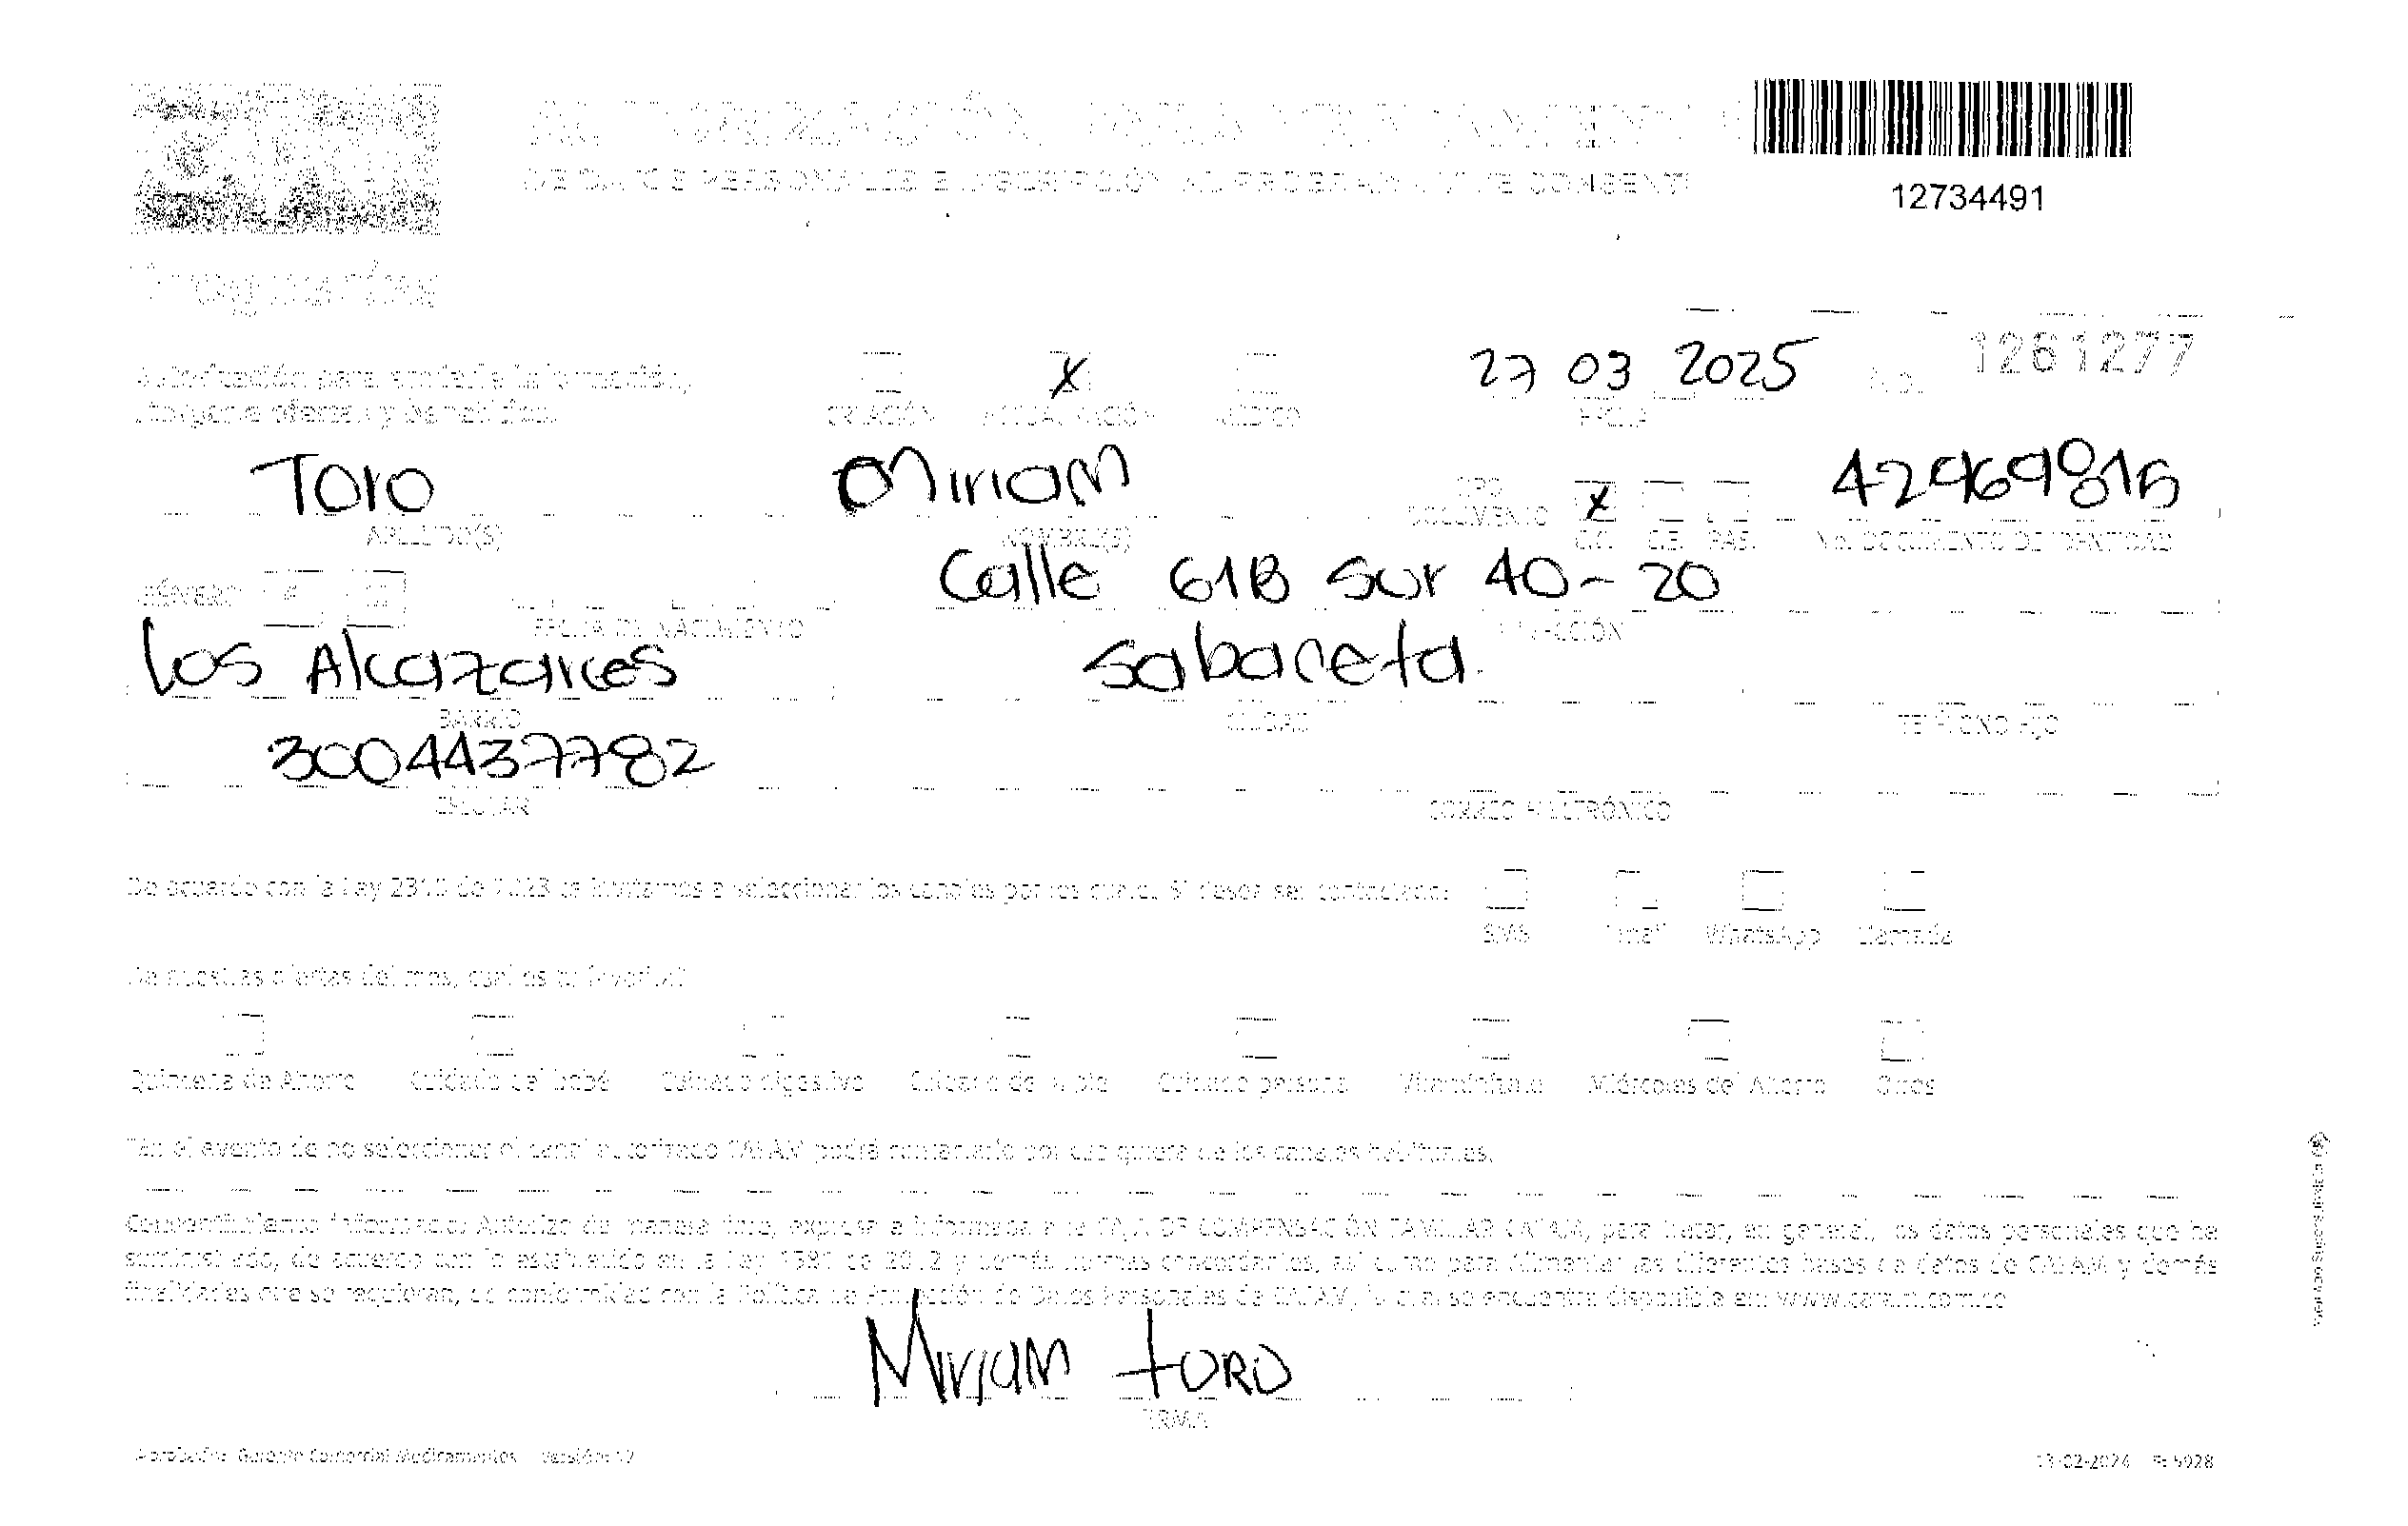 12734491
DE DATOS PERSONALES E INSCRIPCIÓN AL PROGRAMA VIVE CONSENTI
Droguerías
Autorización para enviarle información,
otorgarle ofertas y beneficios.
X
27 03 2025
No. 1261277
CREACIÓN ACTUALIZACIÓN MÉDICO FECHA
Toro Miriam
TIPO DOCUMENTO X 42969815
APELLIDO(S) NOMBRE(S) C.C. C.E. PAS. No. DOCUMENTO DE IDENTIDAD
Calle 61B sur 40-20
GÉNERO F M FECHA DE NACIMIENTO DIRECCIÓN
Los Alcazares Sabaneta.
BARRIO CIUDAD TELÉFONO FIJO
3004437782
CELULAR CORREO ELECTRÓNICO
De acuerdo con la Ley 2300 de 2023 te invitamos a seleccionar los canales por los cuales SI desea ser contactado:
SMS Email WhatsApp Llamada
De nuestras ofertas del mes, cuál es tu favorita?
Quincena de Ahorro Cuidado del bebé Cuidado digestivo Cuidado de la piel Cuidado personal Miércoles del Ahorro Otros
*En el evento de no seleccionar el canal autorizado CAFAM podrá contactarlo por cualquiera de los canales habituales.
Consentimiento Informado: Autorizo de manera libre, expresa e informada a la CAJA DE COMPENSACIÓN FAMILIAR CAFAM, para tratar, en general, los datos personales que he
suministrado, de acuerdo con lo establecido en la Ley 1581 de 2012 y demás normas concordantes, así como para alimentar las diferentes bases de datos de CAFAM y demás
finalidades que se requieran, de conformidad con la Política de Protección de Datos Personales de CAFAM, la cual se encuentra disponible en: www.cafam.com.co
Miriam toro
FIRMA
Aprobación: Gerente Comercial Medicamentos Versión: 12
13-02-2024